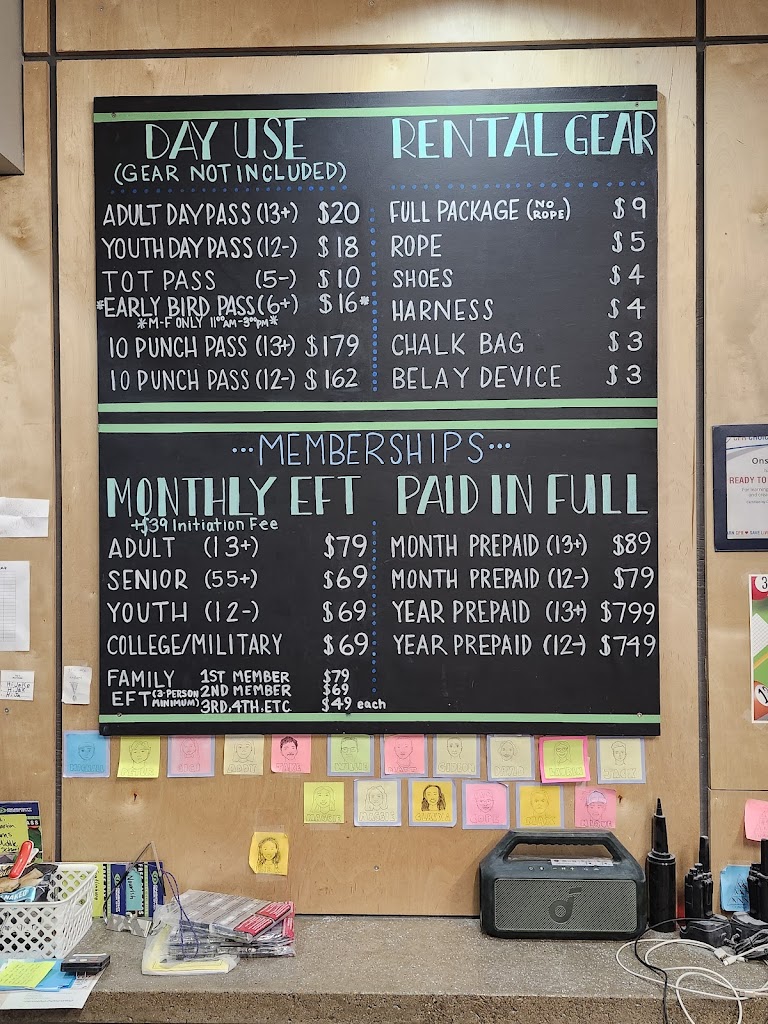 DAY USE
(GEAR NOT INCLUDED)
ADULT DAY PASS (13+) $20
YOUTH DAY PASS (12-) $18
TOT PASS (5-) $10
*EARLY BIRD PASS (6+) $16*
*M-F ONLY 11:00AM-3:00PM*
10 PUNCH PASS (13+) $179
10 PUNCH PASS (12-) $162
RENTAL GEAR
FULL PACKAGE (NO ROPE) $9
ROPE $5
SHOES $4
HARNESS $4
CHALK BAG $3
BELAY DEVICE $3
...MEMBERSHIPS...
MONTHLY EFT
+$39 Initiation Fee
ADULT (13+) $79
SENIOR (55+) $69
YOUTH (12-) $69
COLLEGE/MILITARY $69
FAMILY EFT (3-PERSON MINIMUM)
1ST MEMBER $79
2ND MEMBER $69
3RD, 4TH, ETC $49 each
PAID IN FULL
MONTH PREPAID (13+) $89
MONTH PREPAID (12-) $79
YEAR PREPAID (13+) $799
YEAR PREPAID (12-) $749
Ons
READY TO